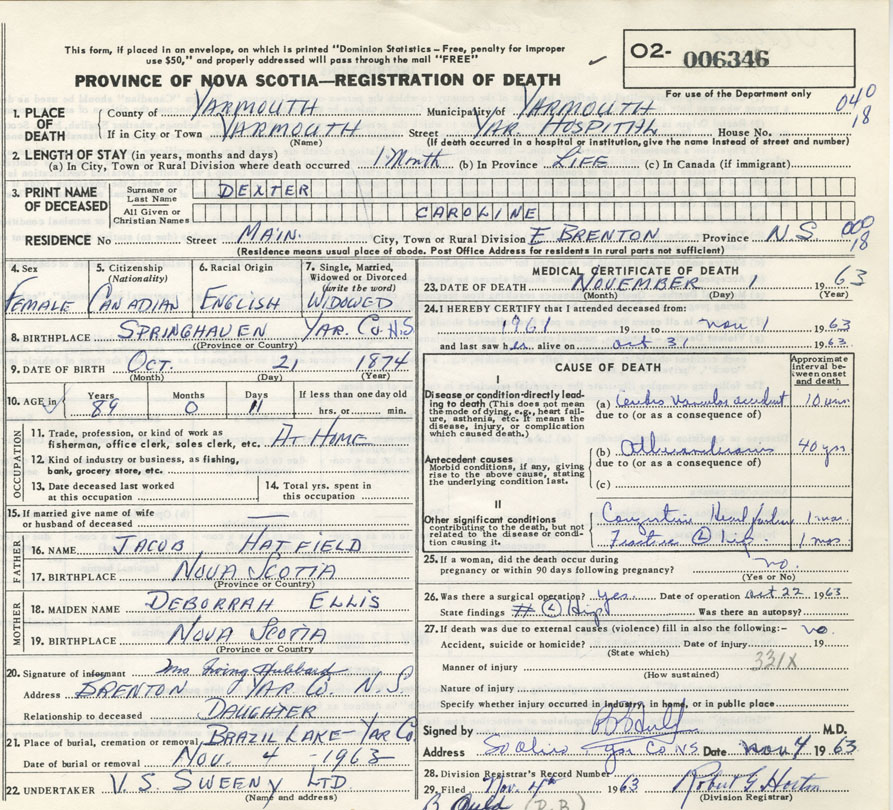 This form, if placed in an envelope, on which is printed "Dominion Statistics – Free, penalty for improper
use $50," and properly addressed will pass through the mail "FREE"
O2- 006346
PROVINCE OF NOVA SCOTIA—REGISTRATION OF DEATH
For use of the Department only
1. PLACE OF DEATH
County of YARMOUTH Municipality of YARMOUTH 040
If in City or Town YARMOUTH Street YAR. HOSPITAL House No. 18
(Name) (If death occurred in a hospital or institution, give the name instead of street and number)
2. LENGTH OF STAY (in years, months and days)
(a) In City, Town or Rural Division where death occurred 1 Month (b) In Province LIFE (c) In Canada (if immigrant)
3. PRINT NAME OF DECEASED
Surname or Last Name DEXTER
All Given or Christian Names CAROLINE
RESIDENCE No Street MAIN. City, Town or Rural Division E BRENTON Province N.S. 000 18
(Residence means usual place of abode. Post Office Address for residents in rural parts not sufficient)
4. Sex FEMALE
5. Citizenship (Nationality) CANADIAN
6. Racial Origin ENGLISH
7. Single, Married, Widowed or Divorced (write the word) WIDOWED
8. BIRTHPLACE SPRINGHAVEN YAR. CO. N.S
(Province or Country)
9. DATE OF BIRTH OCT. 21 1874
(Month) (Day) (Year)
10. AGE in Years 89 Months 0 Days 11 If less than one day old hrs. or min.
OCCUPATION
11. Trade, profession, or kind of work as fisherman, office clerk, sales clerk, etc. AT HOME
12. Kind of industry or business, as fishing, bank, grocery store, etc.
13. Date deceased last worked at this occupation
14. Total yrs. spent in this occupation
15. If married give name of wife or husband of deceased —
FATHER
16. NAME JACOB HATFIELD
17. BIRTHPLACE NOVA SCOTIA
(Province or Country)
MOTHER
18. MAIDEN NAME DEBORRAH ELLIS
19. BIRTHPLACE NOVA SCOTIA
(Province or Country)
20. Signature of informant Mrs Irving Hubbard
Address BRENTON YAR CO. N.S.
Relationship to deceased DAUGHTER
21. Place of burial, cremation or removal BRAZIL LAKE - YAR CO.
Date of burial or removal NOV. 4 - 1963
22. UNDERTAKER V. S. SWEENY LTD
(Name and address)
MEDICAL CERTIFICATE OF DEATH
23. DATE OF DEATH NOVEMBER 1 1963
(Month) (Day) (Year)
24. I HEREBY CERTIFY that I attended deceased from:
1961 19 to Nov 1 1963
and last saw her alive on Oct 31 1963
CAUSE OF DEATH
Approximate interval between onset and death
I
Disease or condition directly leading to death (This does not mean the mode of dying, e.g., heart failure, asthenia, etc. It means the disease, injury, or complication which caused death.)
(a) vascular accident 10 min
due to (or as a consequence of)
Antecedent causes
Morbid conditions, if any, giving rise to the above cause, stating the underlying condition last.
(b) 40 yrs
due to (or as a consequence of)
(c)
II
Other significant conditions contributing to the death, but not related to the disease or condition causing it.
Congestive Heart failure 1 mos.
Fracture (L) hip. 1 mos.
25. If a woman, did the death occur during pregnancy or within 90 days following pregnancy? no.
(Yes or No)
26. Was there a surgical operation? Yes. Date of operation Oct 22 1963
State findings # (L) Hip Was there an autopsy?
27. If death was due to external causes (violence) fill in also the following:- no.
Accident, suicide or homicide? Date of injury 19
(State which)
331X
Manner of injury
(How sustained)
Nature of injury
Specify whether injury occurred in industry, in home, or in public place
Signed by M.D.
Address Yar Co NS Date Nov 4 1963
28. Division Registrar's Record Number
29. Filed Nov. 4th 1963 Robert G. Horton
(Division Registrar)
(D.R.)